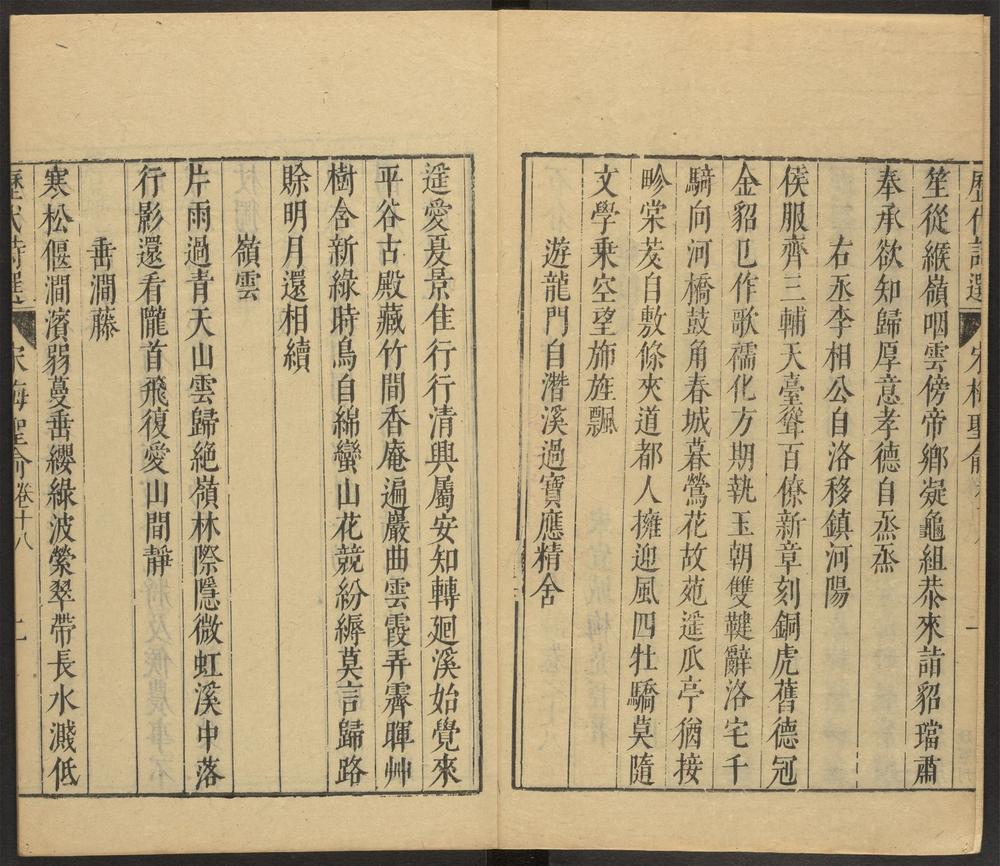 歷代詩選
宋梅聖俞
一
笙從緱嶺咽雲傍帝鄉凝龜組恭來詣貂璫肅
奉承欲知歸厚意孝德自烝烝
右丞李相公自洛移鎮河陽
侯服齊三輔天臺聳百僚新章刻銅虎舊德冠
金貂已作歌襦化方期執玉朝雙鞬辭洛宅千
騎向河橋鼓角春城暮鶯花故苑遥瓜亭猶接
畛棠茇自敷條夾道都人擁迎風四牡驕莫隨
文學乗空望斾旌飄
遊龍門自潛溪過寶應精舍
遥愛夏景佳行行清興屬安知轉廻溪始覺來
平谷古殿藏竹間香庵遍巖曲雲霞弄霽暉艸
樹含新緑時鳥自綿蠻山花競紛縟莫言歸路
賖明月還相續
嶺雲
片雨過青天山雲歸絶嶺林際隱微虹溪中落
行影還看隴首飛復愛山間靜
垂澗藤
寒松偃澗濱弱蔓垂纓緑波縈翠帶長水濺低
歷代詩選
宋梅聖俞卷十八
二